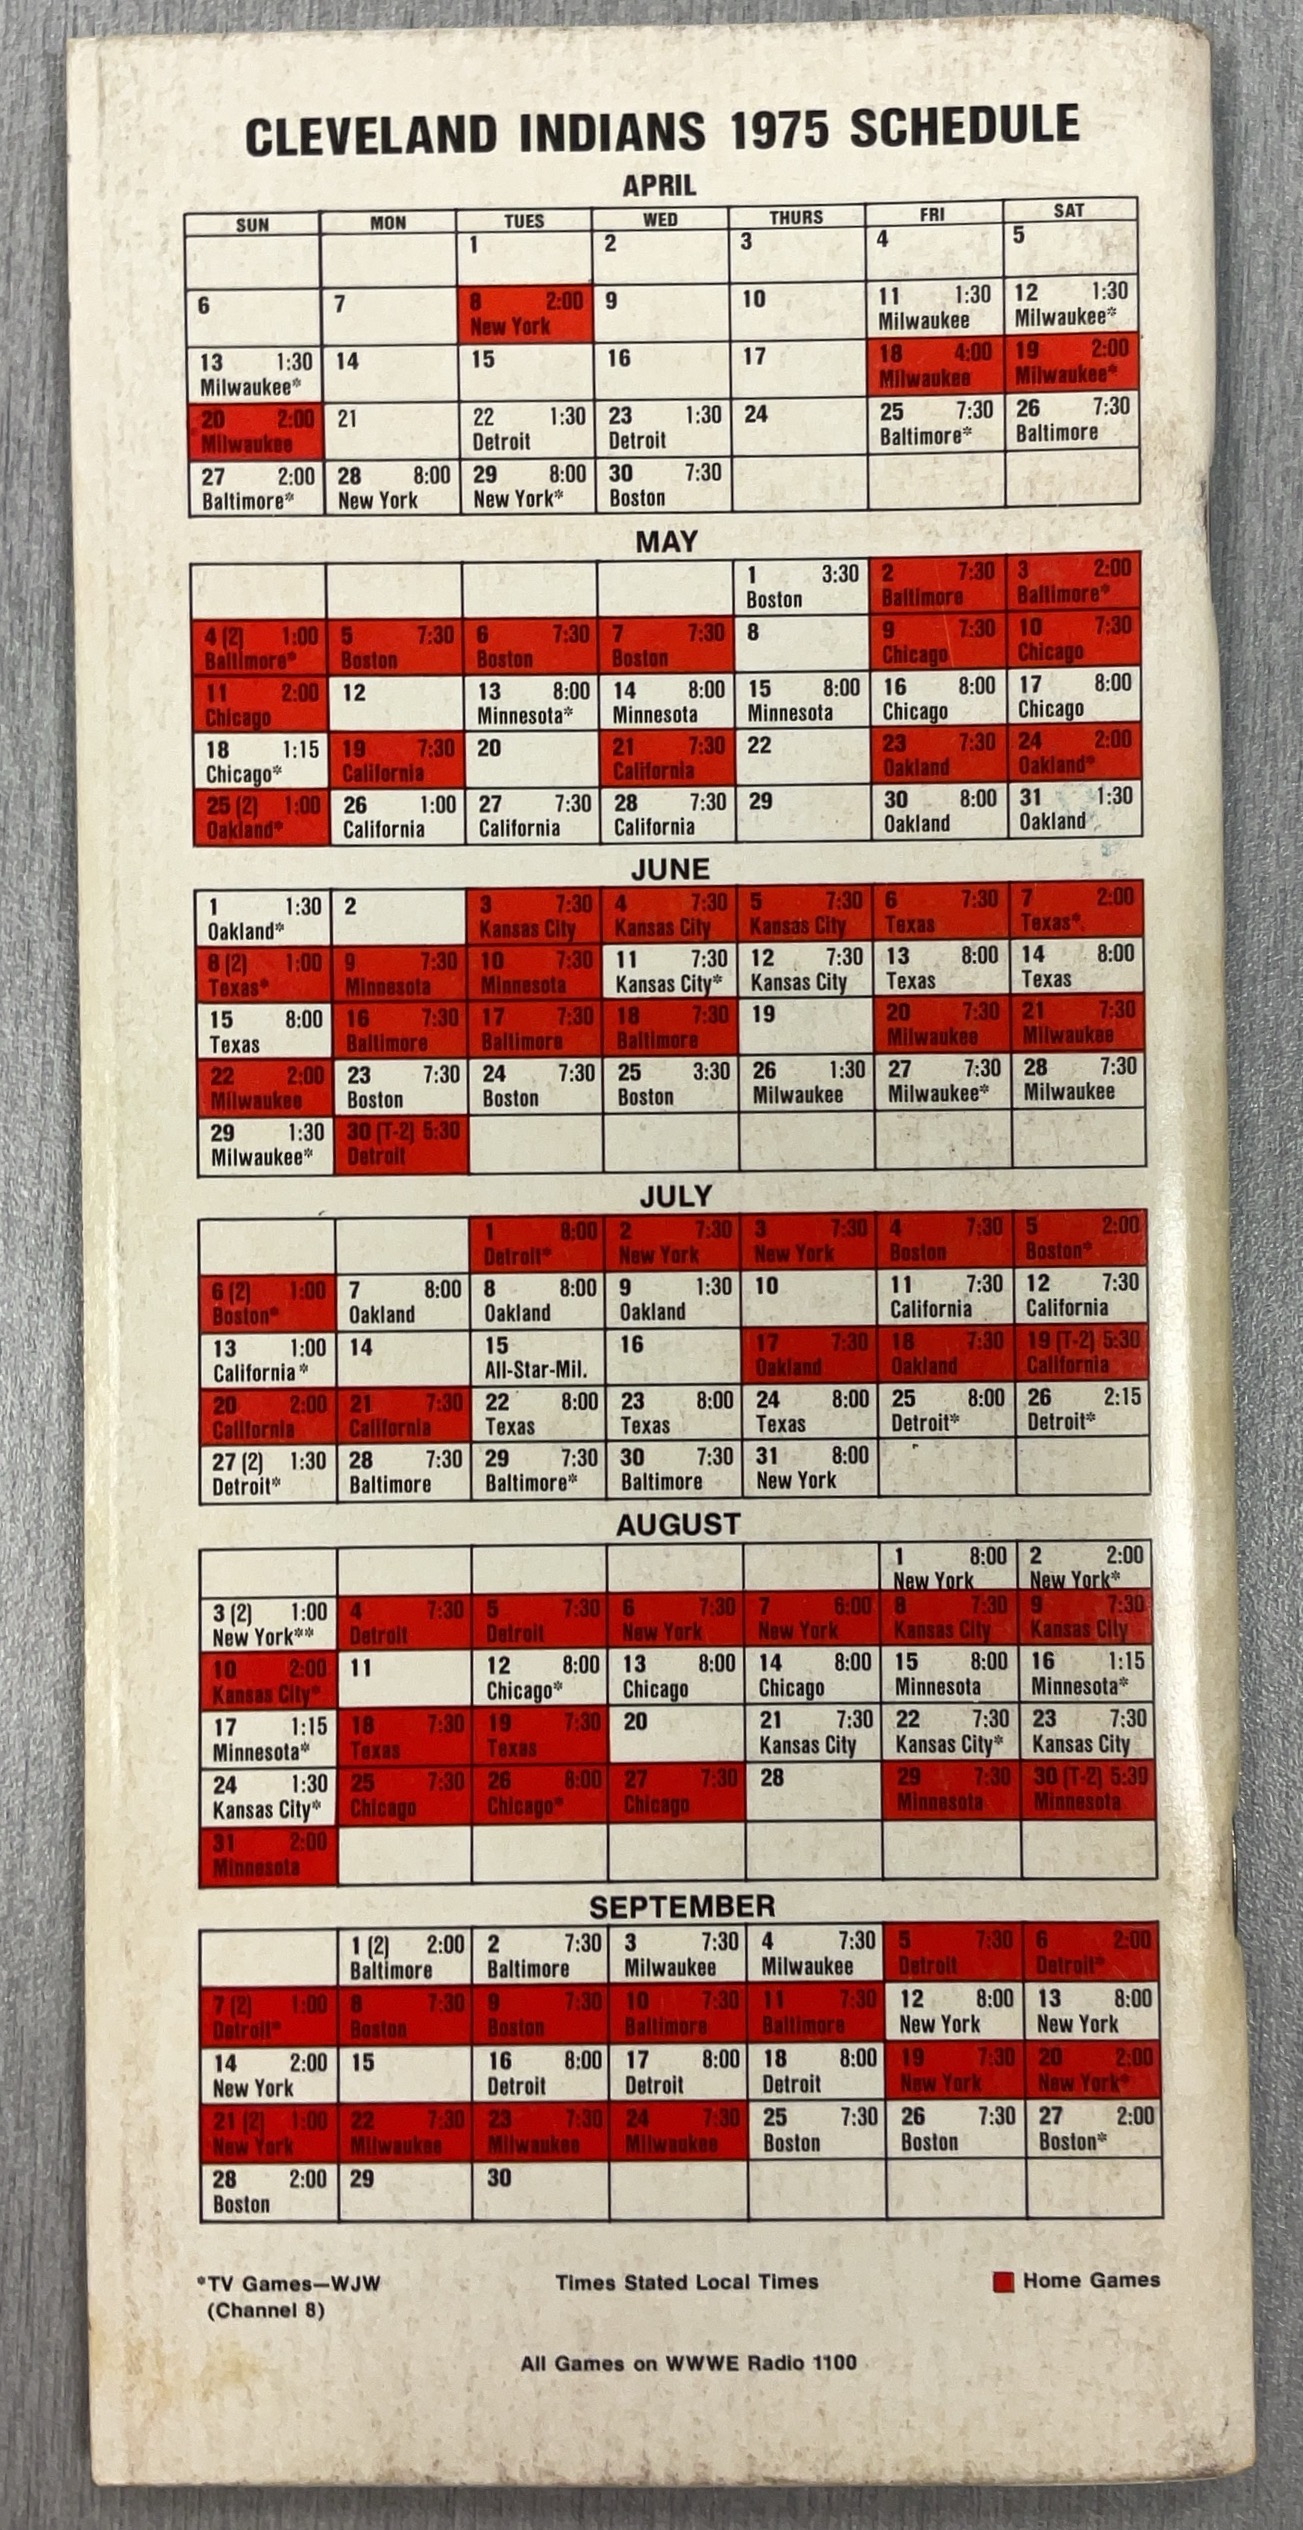 CLEVELAND INDIANS 1975 SCHEDULE
APRIL
SUN MON TUES WED THURS FRI SAT
1 2 3 4 5
6 7 8 2:00 9 10 11 1:30 12 1:30
New York Milwaukee Milwaukee*
13 1:30 14 15 16 17 18 4:00 19 2:00
Milwaukee* Milwaukee Milwaukee*
20 2:00 21 22 1:30 23 1:30 24 25 7:30 26 7:30
Milwaukee Detroit Detroit Baltimore* Baltimore
27 2:00 28 8:00 29 8:00 30 7:30
Baltimore* New York New York* Boston
MAY
1 3:30 2 7:30 3 2:00
Boston Baltimore Baltimore*
4 (2) 1:00 5 7:30 6 7:30 7 7:30 8 9 7:30 10 7:30
Baltimore* Boston Boston Boston Chicago Chicago
11 2:00 12 13 8:00 14 8:00 15 8:00 16 8:00 17 8:00
Chicago Minnesota* Minnesota Minnesota Chicago Chicago
18 1:15 19 7:30 20 21 7:30 22 23 7:30 24 2:00
Chicago* California California Oakland Oakland*
25 (2) 1:00 26 1:00 27 7:30 28 7:30 29 30 8:00 31 1:30
Oakland* California California California Oakland Oakland
JUNE
1 1:30 2 3 7:30 4 7:30 5 7:30 6 7:30 7 2:00
Oakland* Kansas City Kansas City Kansas City Texas Texas*
8 (2) 1:00 9 7:30 10 7:30 11 7:30 12 7:30 13 8:00 14 8:00
Texas* Minnesota Minnesota Kansas City* Kansas City Texas Texas
15 8:00 16 7:30 17 7:30 18 7:30 19 20 7:30 21 7:30
Texas Baltimore Baltimore Baltimore Milwaukee Milwaukee
22 2:00 23 7:30 24 7:30 25 3:30 26 1:30 27 7:30 28 7:30
Milwaukee Boston Boston Boston Milwaukee Milwaukee* Milwaukee
29 1:30 30 (T-2) 5:30
Milwaukee* Detroit
JULY
1 8:00 2 7:30 3 7:30 4 7:30 5 2:00
Detroit* New York New York Boston Boston*
6 (2) 1:00 7 8:00 8 8:00 9 1:30 10 11 7:30 12 7:30
Boston* Oakland Oakland Oakland California California
13 1:00 14 15 16 17 7:30 18 7:30 19 (T-2) 5:30
California* All-Star-Mil. Oakland Oakland California
20 2:00 21 7:30 22 8:00 23 8:00 24 8:00 25 8:00 26 2:15
California California Texas Texas Texas Detroit* Detroit*
27 (2) 1:30 28 7:30 29 7:30 30 7:30 31 8:00
Detroit* Baltimore Baltimore* Baltimore New York
AUGUST
1 8:00 2 2:00
New York New York*
3 (2) 1:00 4 7:30 5 7:30 6 7:30 7 6:00 8 7:30 9 7:30
New York** Detroit Detroit New York New York Kansas City Kansas City
10 2:00 11 12 8:00 13 8:00 14 8:00 15 8:00 16 1:15
Kansas City* Chicago* Chicago Chicago Minnesota Minnesota*
17 1:15 18 7:30 19 7:30 20 21 7:30 22 7:30 23 7:30
Minnesota* Texas Texas Kansas City Kansas City* Kansas City
24 1:30 25 7:30 26 8:00 27 7:30 28 29 7:30 30 (T-2) 5:30
Kansas City* Chicago Chicago* Chicago Minnesota Minnesota
31 2:00
Minnesota
SEPTEMBER
1 (2) 2:00 2 7:30 3 7:30 4 7:30 5 7:30 6 2:00
Baltimore Baltimore Milwaukee Milwaukee Detroit Detroit*
7 (2) 1:00 8 7:30 9 7:30 10 7:30 11 7:30 12 8:00 13 8:00
Detroit* Boston Boston Baltimore Baltimore New York New York
14 2:00 15 16 8:00 17 8:00 18 8:00 19 7:30 20 2:00
New York Detroit Detroit Detroit New York New York*
21 (2) 1:00 22 7:30 23 7:30 24 7:30 25 7:30 26 7:30 27 2:00
New York Milwaukee Milwaukee Milwaukee Boston Boston Boston*
28 2:00 29 30
Boston
*TV Games—WJW Times Stated Local Times Home Games
(Channel 8)
All Games on WWWE Radio 1100